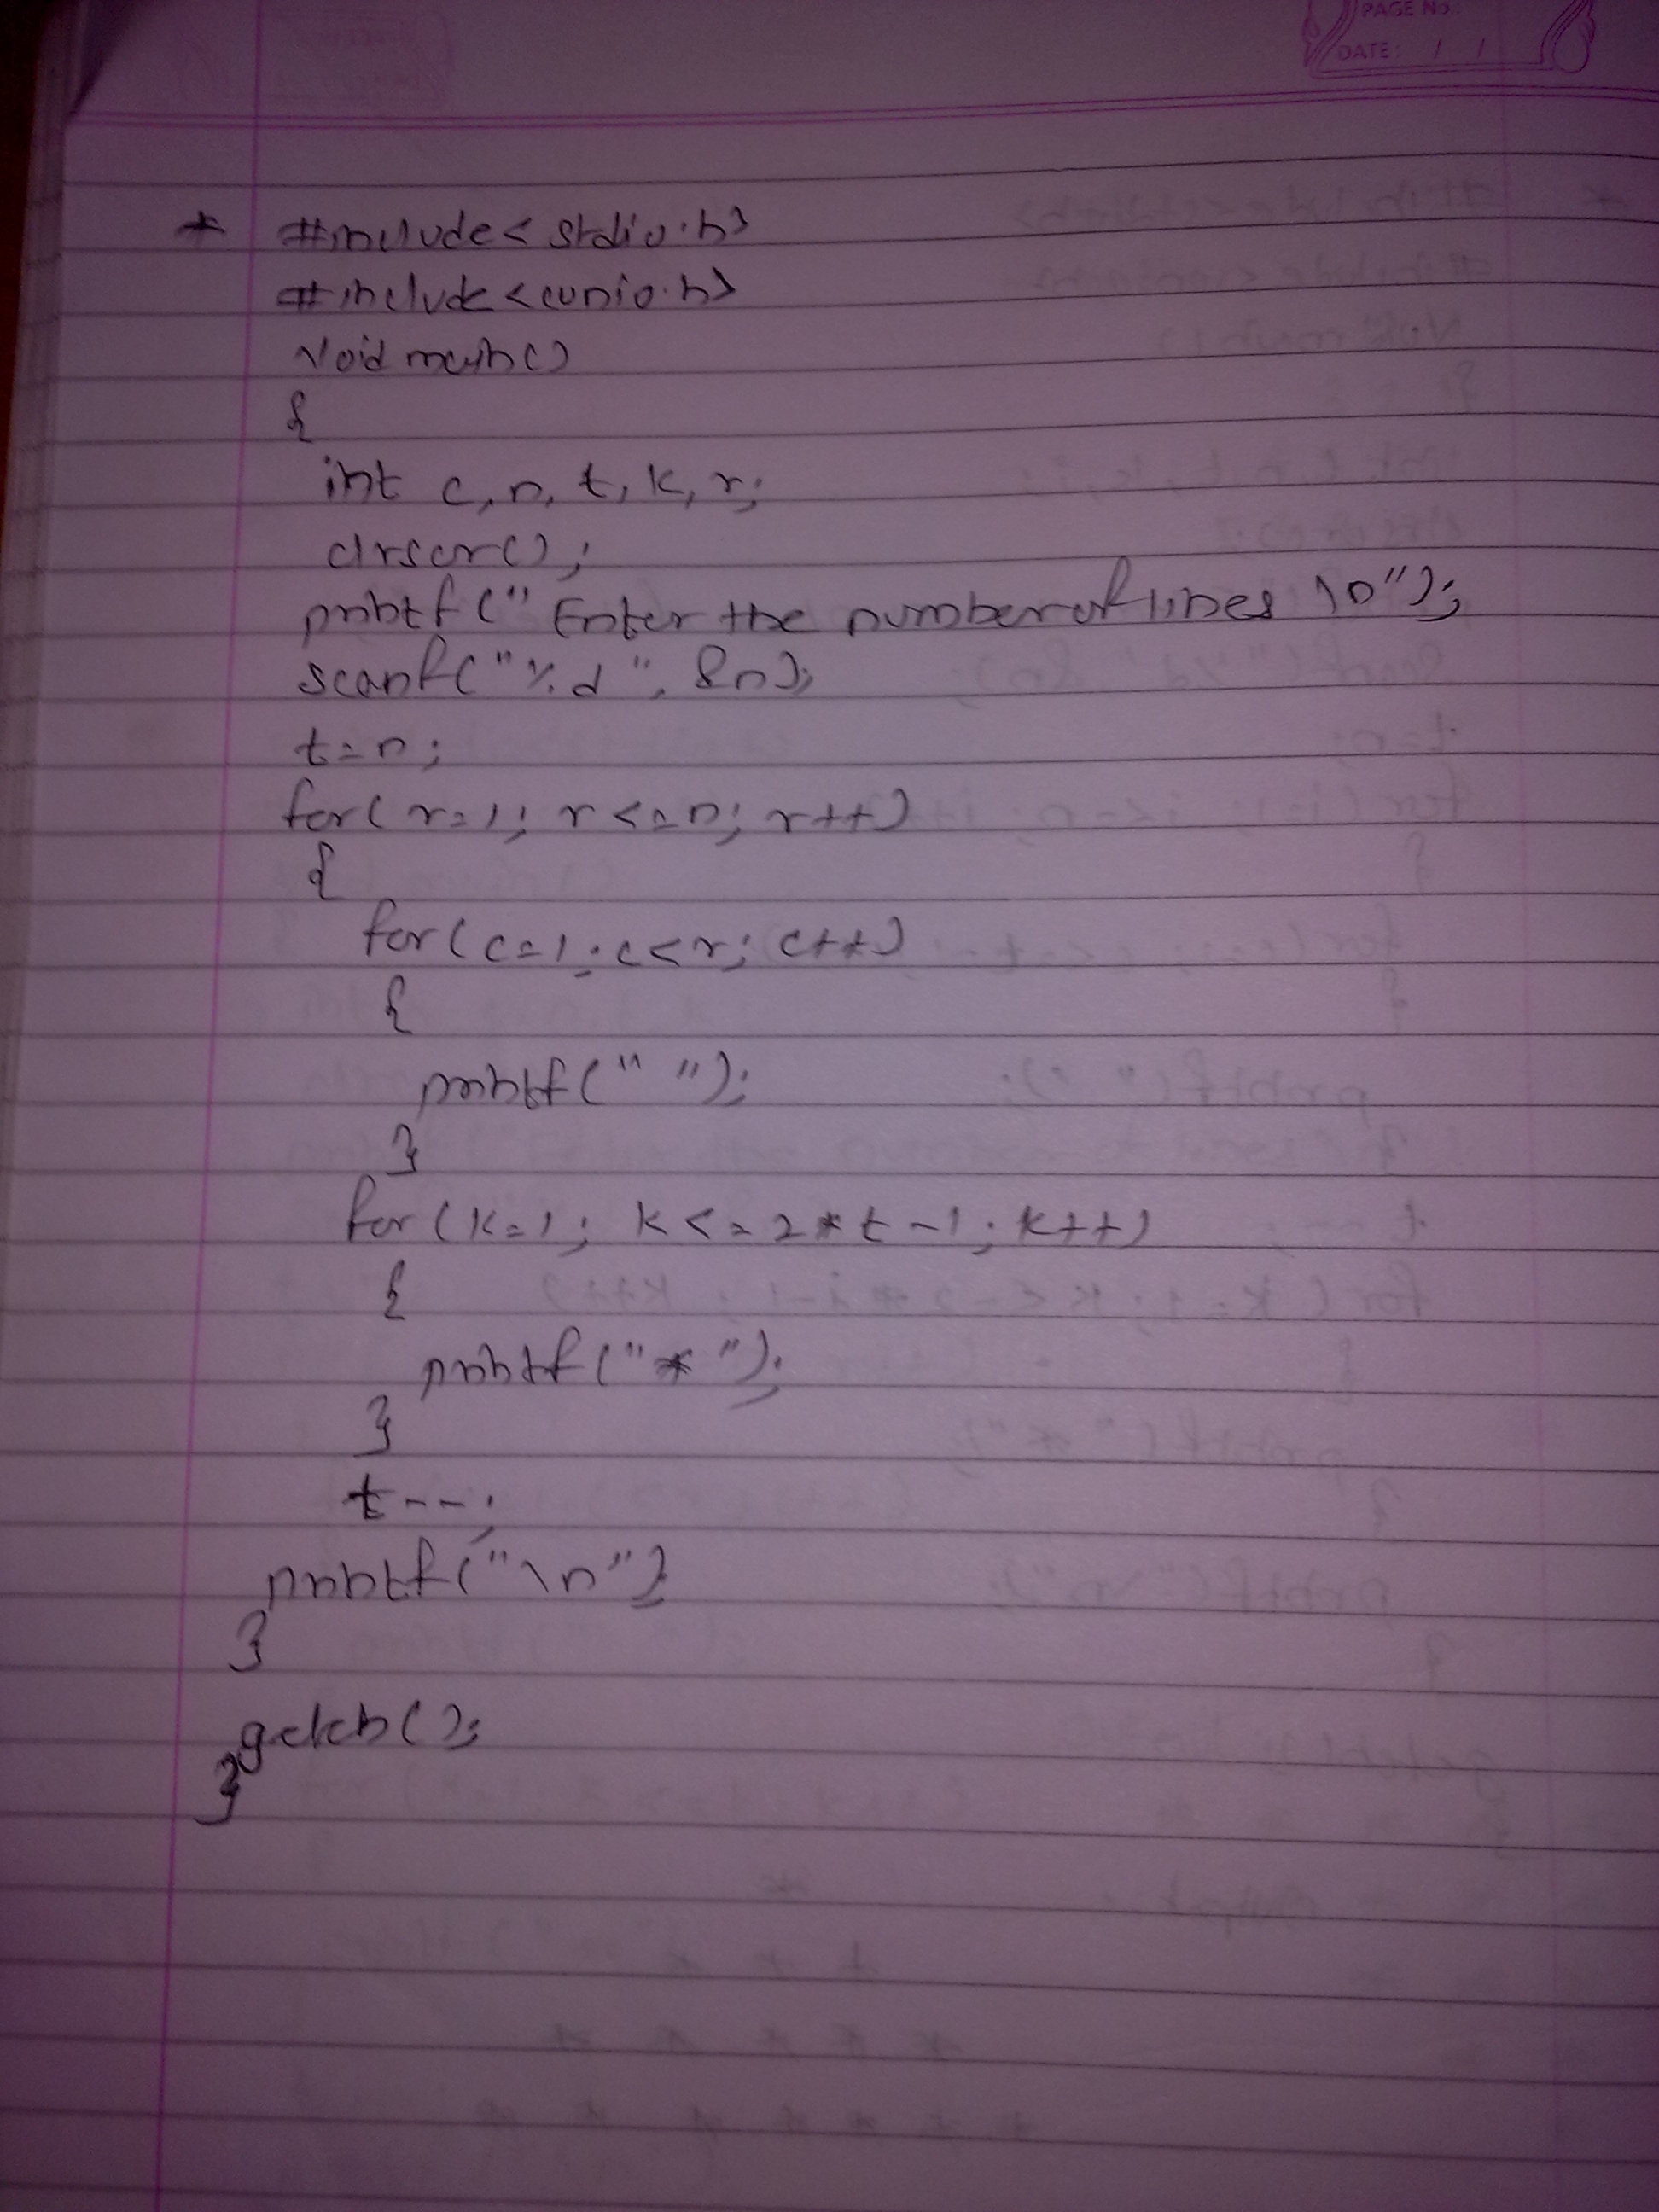 PAGE No.
DATE: / /
* #include< stdio.h>
#include <conio.h>
void main()
{
int c, n, t, k, r;
clrscr();
printf(" Enter the number of lines \n");
scanf("%d", &n);
t=n;
for( r=1; r<=n; r++)
{
for( c=1; c<r; c++)
{
printf(" ");
}
for( k=1; k<=2*t-1; k++)
{
printf("*");
}
t--;
printf("\n");
}
getch();
}